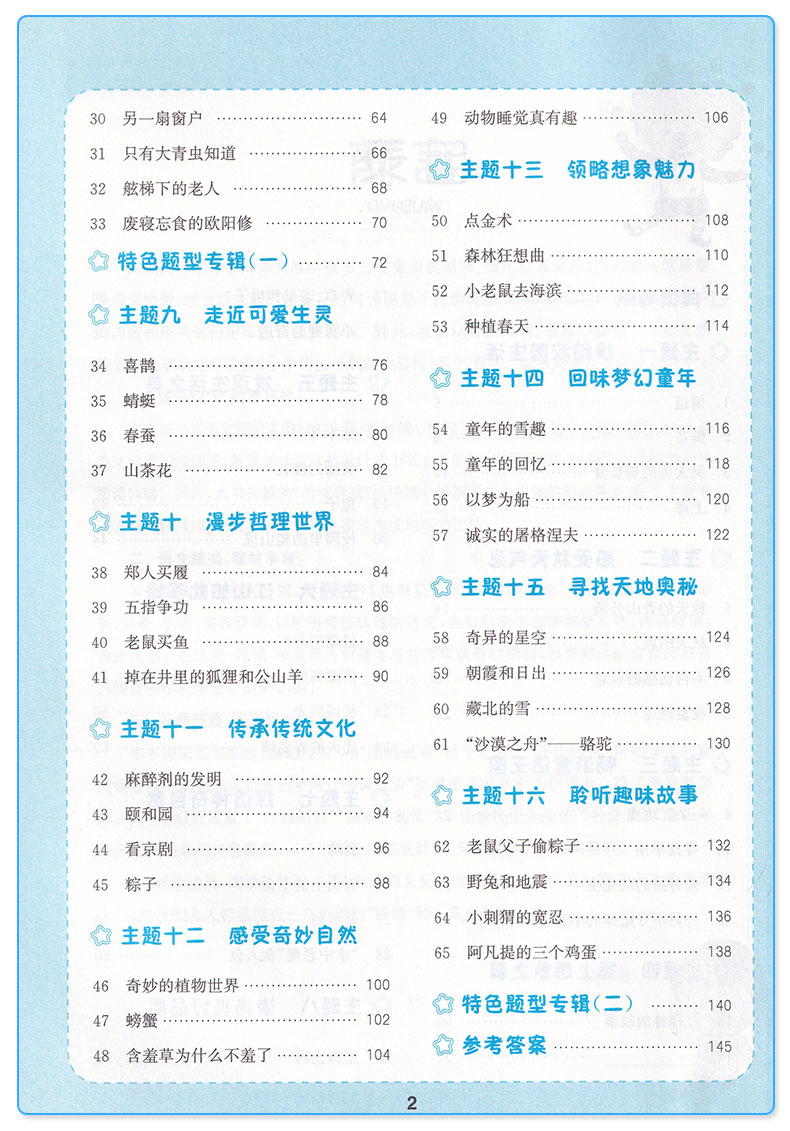 30 另一扇窗户 …… 64
31 只有大青虫知道 …… 66
32 舷梯下的老人 …… 68
33 废寝忘食的欧阳修 …… 70
特色题型专辑(一) …… 72
主题九 走近可爱生灵
34 喜鹊 …… 76
35 蜻蜓 …… 78
36 春蚕 …… 80
37 山茶花 …… 82
主题十 漫步哲理世界
38 郑人买履 …… 84
39 五指争功 …… 86
40 老鼠买鱼 …… 88
41 掉在井里的狐狸和公山羊 …… 90
主题十一 传承传统文化
42 麻醉剂的发明 …… 92
43 颐和园 …… 94
44 看京剧 …… 96
45 粽子 …… 98
主题十二 感受奇妙自然
46 奇妙的植物世界 …… 100
47 螃蟹 …… 102
48 含羞草为什么不羞了 …… 104
49 动物睡觉真有趣 …… 106
主题十三 领略想象魅力
50 点金术 …… 108
51 森林狂想曲 …… 110
52 小老鼠去海滨 …… 112
53 种植春天 …… 114
主题十四 回味梦幻童年
54 童年的雪趣 …… 116
55 童年的回忆 …… 118
56 以梦为船 …… 120
57 诚实的屠格涅夫 …… 122
主题十五 寻找天地奥秘
58 奇异的星空 …… 124
59 朝霞和日出 …… 126
60 藏北的雪 …… 128
61 “沙漠之舟”——骆驼 …… 130
主题十六 聆听趣味故事
62 老鼠父子偷粽子 …… 132
63 野兔和地震 …… 134
64 小刺猬的宽忍 …… 136
65 阿凡提的三个鸡蛋 …… 138
特色题型专辑(二) …… 140
参考答案 …… 145
2